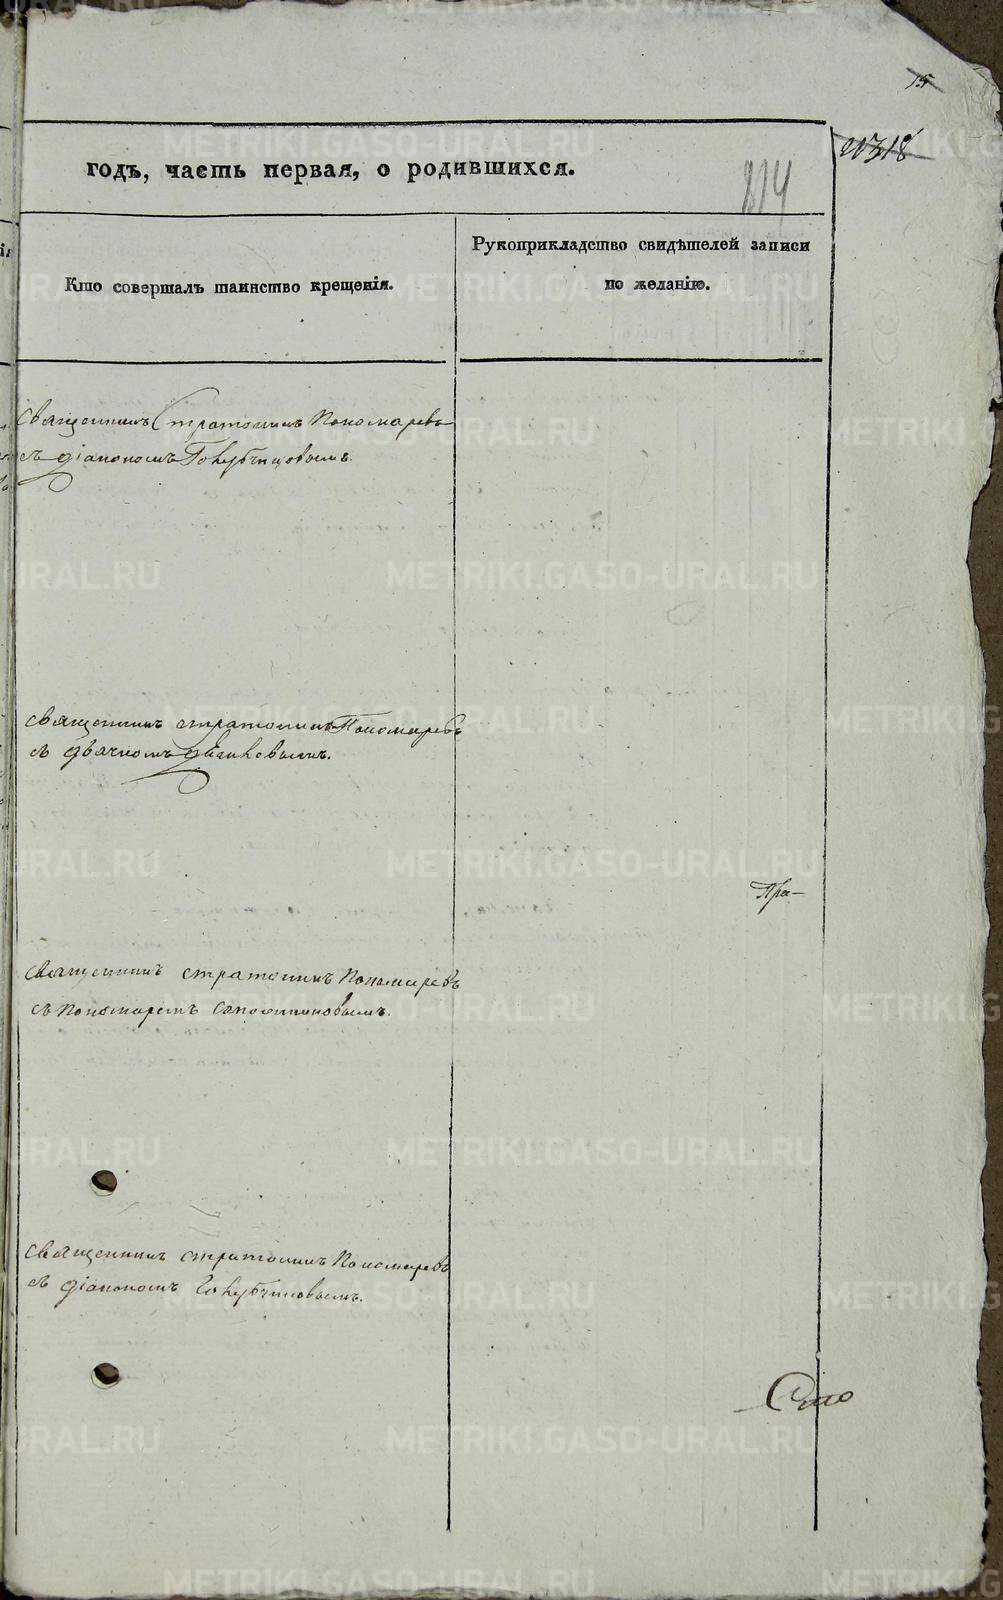 15
20318
814
годъ, часть первая, о родившихся.
Кто совершалъ таинство крещенія.
Рукоприкладство свидѣтелей записи
по желанію.
Священникъ Стратоникъ Пономаревъ
съ діакономъ
священникъ стратоникъ Пономаревъ
съ дьячкомъ
Пра-
священникъ стратоникъ Пономаревъ
съ пономаремъ
священникъ стратоникъ Пономаревъ
съ діакономъ
METRIKI.GASO-URAL.RU